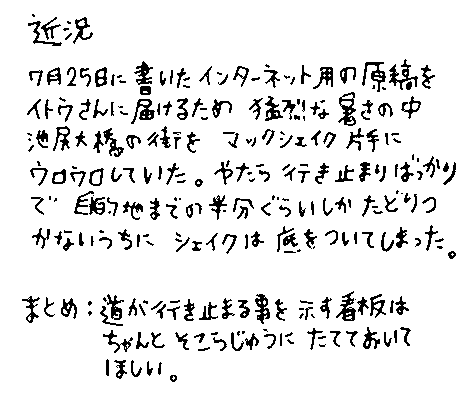 近況
7月25日に書いたインターネット用の原稿を
イトウさんに届けるため 猛烈な暑さの中
池尻大橋の街を マックシェイク片手に
ウロウロしていた。やたら行き止まりばっかり
で 目的地までの半分ぐらいしかたどりつ
かないうちに シェイクは底をついてしまった。
まとめ：道が行き止まる事を示す看板は
ちゃんとそこらじゅうにたてておいて
ほしい。